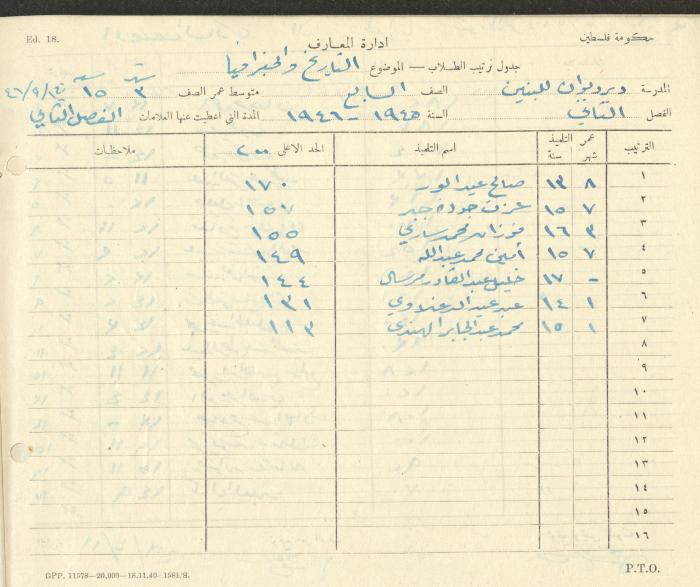 Ed. 18.
حكومة فلسطين
ادارة المعارف
جدول ترتيب الطلاب — الموضوع التاريخ والجغرافيا
المدرسة ديربوان للبنين الصف السابع متوسط عمر الصف ٣ شهر ١٥ سنة
الفصل الثاني السنة ١٩٤٥ - ١٩٤٦ المدة التي اعطيت عنها العلامات الفصل الثاني
الترتيب عمر التلميذ شهر سنة اسم التلميذ الحد الاعلى ٢٠٠ ملاحظات
١ ٨ ١٣ صالح عبد ١٧٠
٢ ٧ ١٥ عزت جودة جبر ١٥٧
٣ ٣ ١٦ فوزان محمد ١٥٥
٤ ٧ ١٥ أمين محمد عبد الله ١٤٩
٥ - ١٧ خليل عبد القادر مرسال ١٤٤
٦ ١ ١٤ عبد ١٣١
٧ ١ ١٥ محمد عبد الجابر الهندي ١١٣
٨
٩
١٠
١١
١٢
١٣
١٤
١٥
١٦
GPP. 11578—20,000—18.11.40—1581/S.
P.T.O.